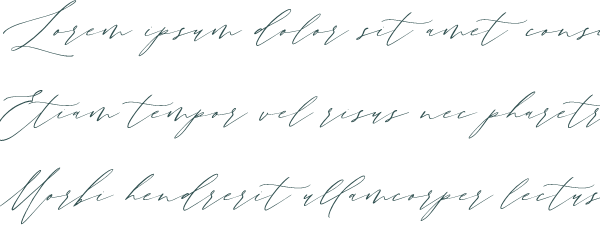 Lorem ipsum dolor sit amet consi
Etiam tempor vel risus nec pharetr
Morbi hendrerit ullamcorper lectus